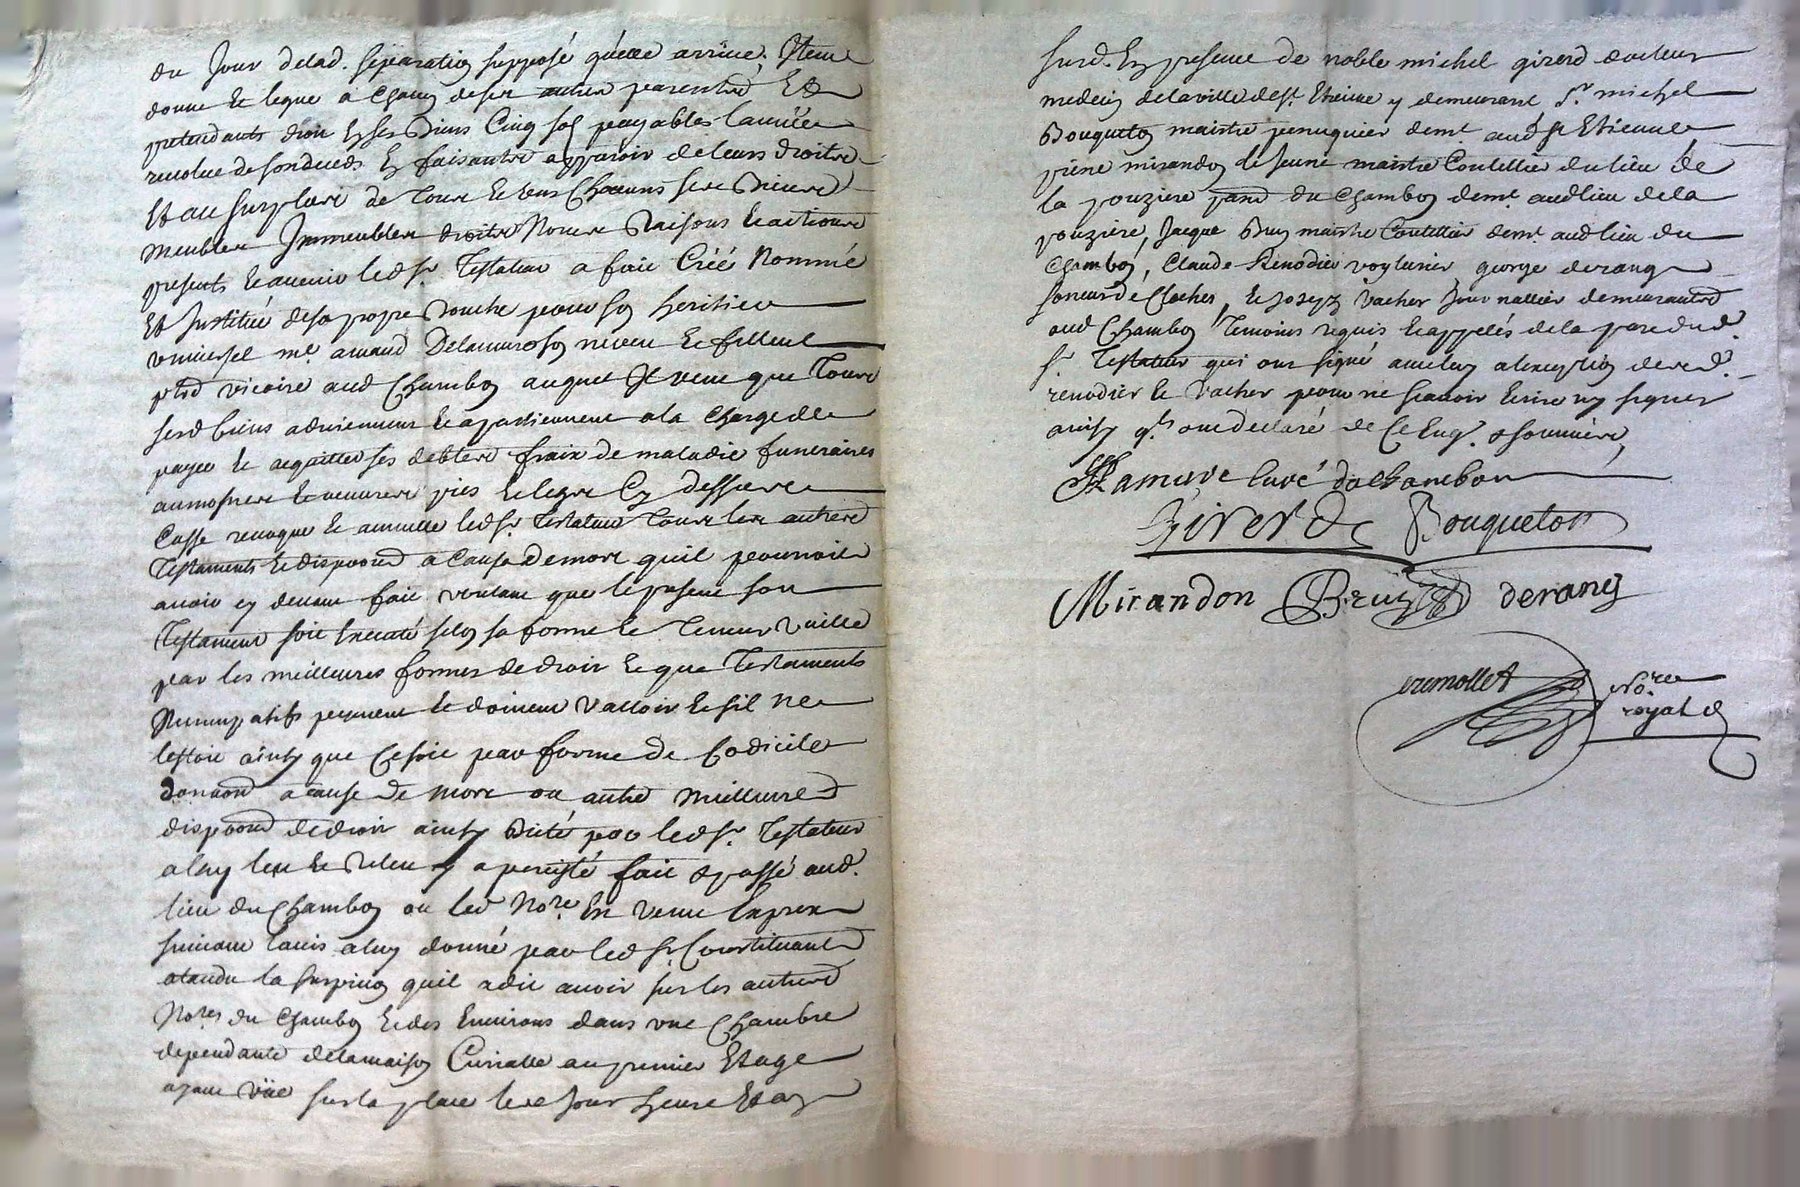 du Jour delad. separation supposé quelle arrive. Item
donne et legue a chacun de ses autres parents Et
pretendants droit En ses Biens Cinq sols payables l'année
revolue de son deceds En faisant apparoir de leurs droits
Et au surplus de tous et uns chacuns ses Biens
Meubles Immeubles droits Noms Raisons et actions
presents et avenir led sr. Testateur a fait Créé Nommé
Et Institué desa propre Bouche pour son heritier
universel mr. amand Delamure son neveu et filleul
vicaire aud Chambon auquel Il veut que Tous
sesd biens adviennent et apartiennent a la charge de
payer et acquitter ses debtes fraix de maladie funeraires
aumosnes et œuvres pies et legs Cy dessus
Casse revoque et annulle led sr. Testateur Tous les autres
Testaments et a Cause de mort quil pourroit
avoir cy devant fait voulant que le present son
Testament soit Executé selon sa forme et Teneur Vaille
par les meilleures formes de droit et que Testaments
Nuncupatifs peuvent et doivent Valloir Et sil ne
lestoit ainsy que Ce soit par forme de Codicile
a cause de mort ou autre meilleures
de droit ainsy dicté par led sr. Testateur
a luy leu et releu y a persisté fait & passé aud.
lieu du Chambon ou led Nore. Est venu Expres
suivant lavis a luy donné par led sr. Constituant
atandu la suspicion quil a dit avoir sur les autres
Nores du Chambon et des Environs dans une Chambre
dependante de la maison Curialle au premier Etage
ayant vüe sur la place les Jour heure Et an
susd. En presence de noble michel girerd docteur
medecin de la ville de st. Etienne y demeurant sr. michel
Bouqueton maistre perruquier demt. aud St Etienne
piere mirandon le Jeune maistre Coutellier du lieu de
la pouziere du Chambon demt. aud lieu de la
pouziere, Jacque Bruy maistre Coutellier demt. aud lieu du
Chambon, Claude Renodier voyturier george derang
soneur de Cloches, et Joseph Vacher Journallier demeurants
aud Chambon Temoins requis et appelés de la part dud.
sr. Testateur qui ont signé avec luy a lexception desd.
renodier et Vacher pour ne scavoir Ecrire ny signer
ainsy qls ont declaré de Ce Enq. & sommés,
Delamure Curé du Chambon
Girerd Bouqueton
Mirandon Bruy derang
cremollet Nore
royal